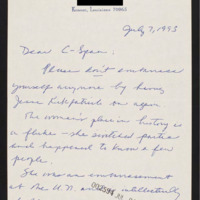 Kenner, Louisiana 70065
July 7, 1993
Dear C-Span:
Please don't embarrass
yourself anymore by having
Jeane Kirkpatrick on again.
The woman's place in history is
a fluke - she switched parties
and happened to know a few
people.
She was an embarrassment
at the U.N. and intellectually